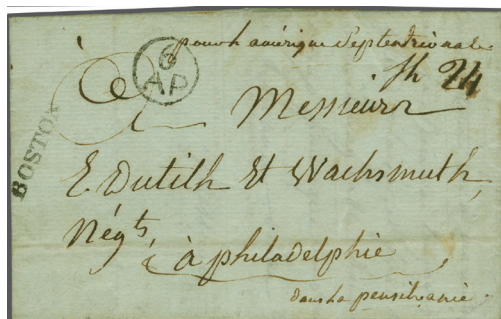 pour l'amérique Septentrionale
6
AP
Sh 24
BOSTON
Messieurs
E. Dutilh Et Wachsmuth,
Négts,
à philadelphie
dans la pensilvanie